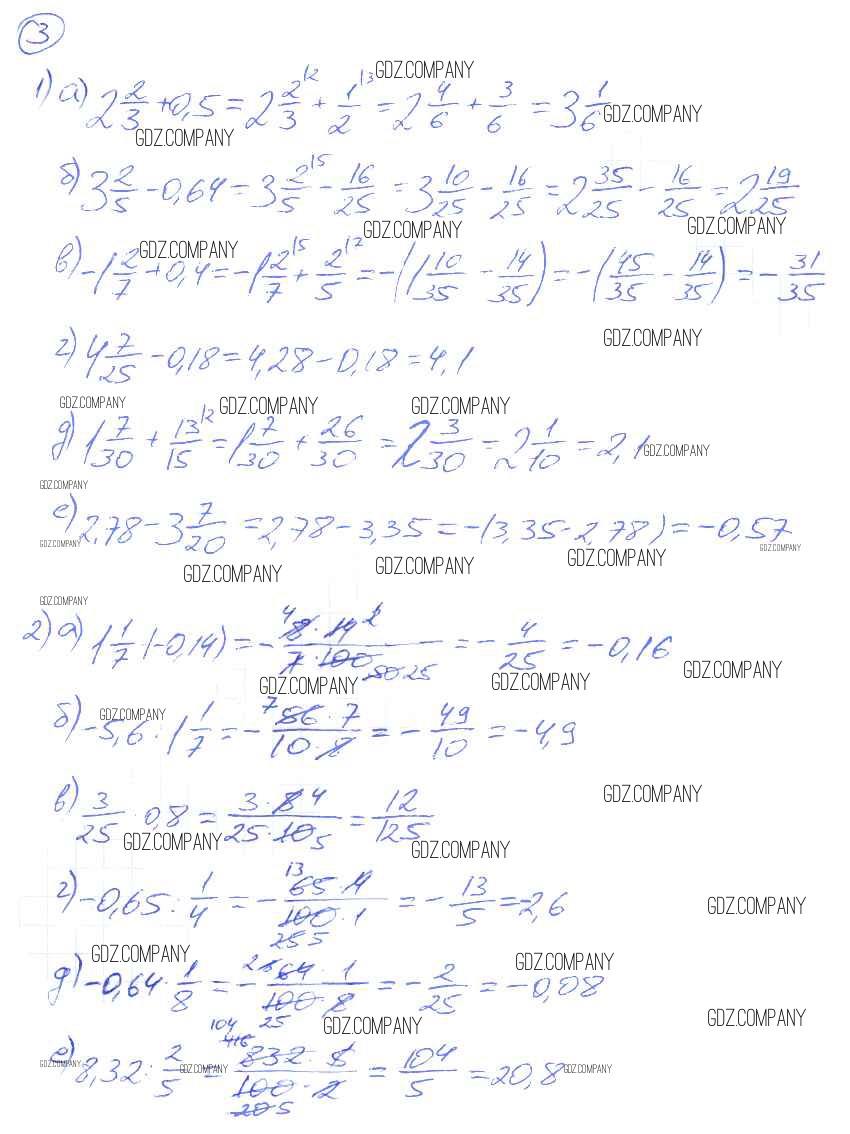 3
1) а) 2 2/3 + 0,5 = 2 2/3 |2 + 1/2 |3 = 2 4/6 + 3/6 = 3 1/6
GDZ.COMPANY
GDZ.COMPANY
GDZ.COMPANY
б) 3 2/5 - 0,64 = 3 2/5 |5 - 16/25 = 3 10/25 - 16/25 = 2 35/25 - 16/25 = 2 19/25
GDZ.COMPANY
GDZ.COMPANY
GDZ.COMPANY
в) -1 2/7 + 0,4 = -1 2/7 |5 + 2/5 |7 = -(1 10/35 - 14/35) = -(45/35 - 14/35) = -31/35
GDZ.COMPANY
г) 4 7/25 - 0,18 = 4,28 - 0,18 = 4,1
GDZ.COMPANY
GDZ.COMPANY
GDZ.COMPANY
д) 1 7/30 + 13/15 |2 = 1 7/30 + 26/30 = 2 3/30 = 2 1/10 = 2,1
GDZ.COMPANY
GDZ.COMPANY
е) 2,78 - 3 7/20 = 2,78 - 3,35 = -(3,35 - 2,78) = -0,57
GDZ.COMPANY
GDZ.COMPANY
GDZ.COMPANY
GDZ.COMPANY
GDZ.COMPANY
GDZ.COMPANY
2) а) 1 1/7 · (-0,14) = - 8 · 14 / 7 · 100 = - 4/25 = -0,16
GDZ.COMPANY
GDZ.COMPANY
GDZ.COMPANY
GDZ.COMPANY
б) -5,6 : 1 1/7 = - 56 · 7 / 10 · 8 = - 49/10 = -4,9
в) 3/25 · 0,8 = 3 · 8 4 / 25 · 10 5 = 12/125
GDZ.COMPANY
GDZ.COMPANY
GDZ.COMPANY
г) -0,65 : 1/4 = - 65 · 4 / 100 · 1 = - 13/5 = -2,6
GDZ.COMPANY
GDZ.COMPANY
GDZ.COMPANY
д) -0,64 · 1/8 = - 64 · 1 / 100 · 8 = - 2/25 = -0,08
GDZ.COMPANY
GDZ.COMPANY
е) 8,32 : 2/5 = 832 · 5 / 100 · 2 = 104/5 = 20,8
GDZ.COMPANY
GDZ.COMPANY
GDZ.COMPANY